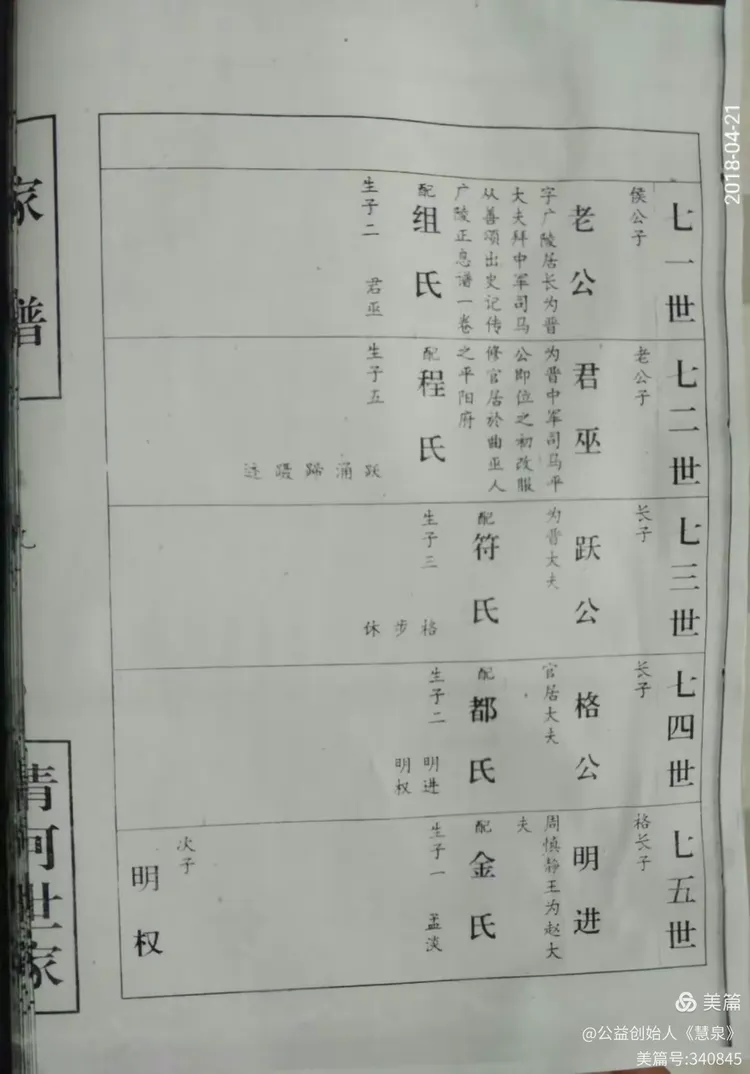 七一世
侯公子
老公
字广陵居长为晋
大夫拜中军司马
从善颂出史记传
广陵正息谱一卷
配
组氏
生子二 君巫
七二世
老公子
君巫
为晋中军司马平
公即位之初改服
修官居於曲巫人
之平阳府
配
程氏
生子五
跃
涌
蹄
蹑
迹
七三世
长子
跃公
为晋大夫
配
符氏
生子三
格
步
休
七四世
长子
格公
官居大夫
配
都氏
生子二
明进
明权
七五世
格长子
明进
周慎静王为赵大
夫
配
金氏
生子一 孟淡
次子
明权
家谱
九
清河世家
2018-04-21
美篇
@公益创始人《慧泉》
美篇号:340845